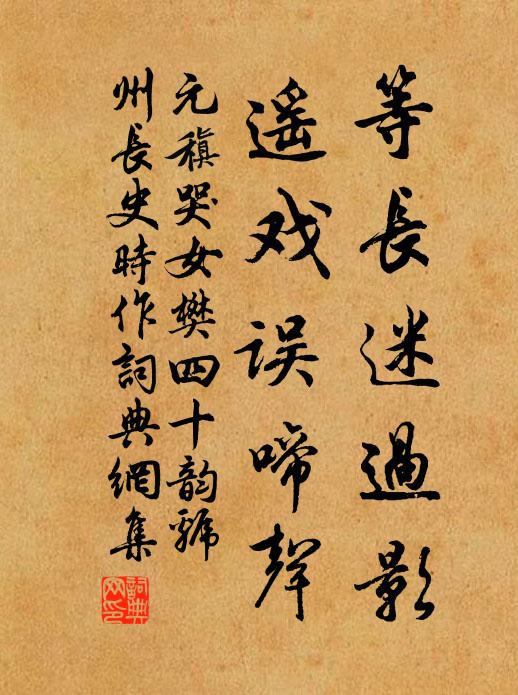 等長迷過影
遥戏误啼聲
元稹哭女樊四十韵虢
州長史時作詞典網集
詞典网印